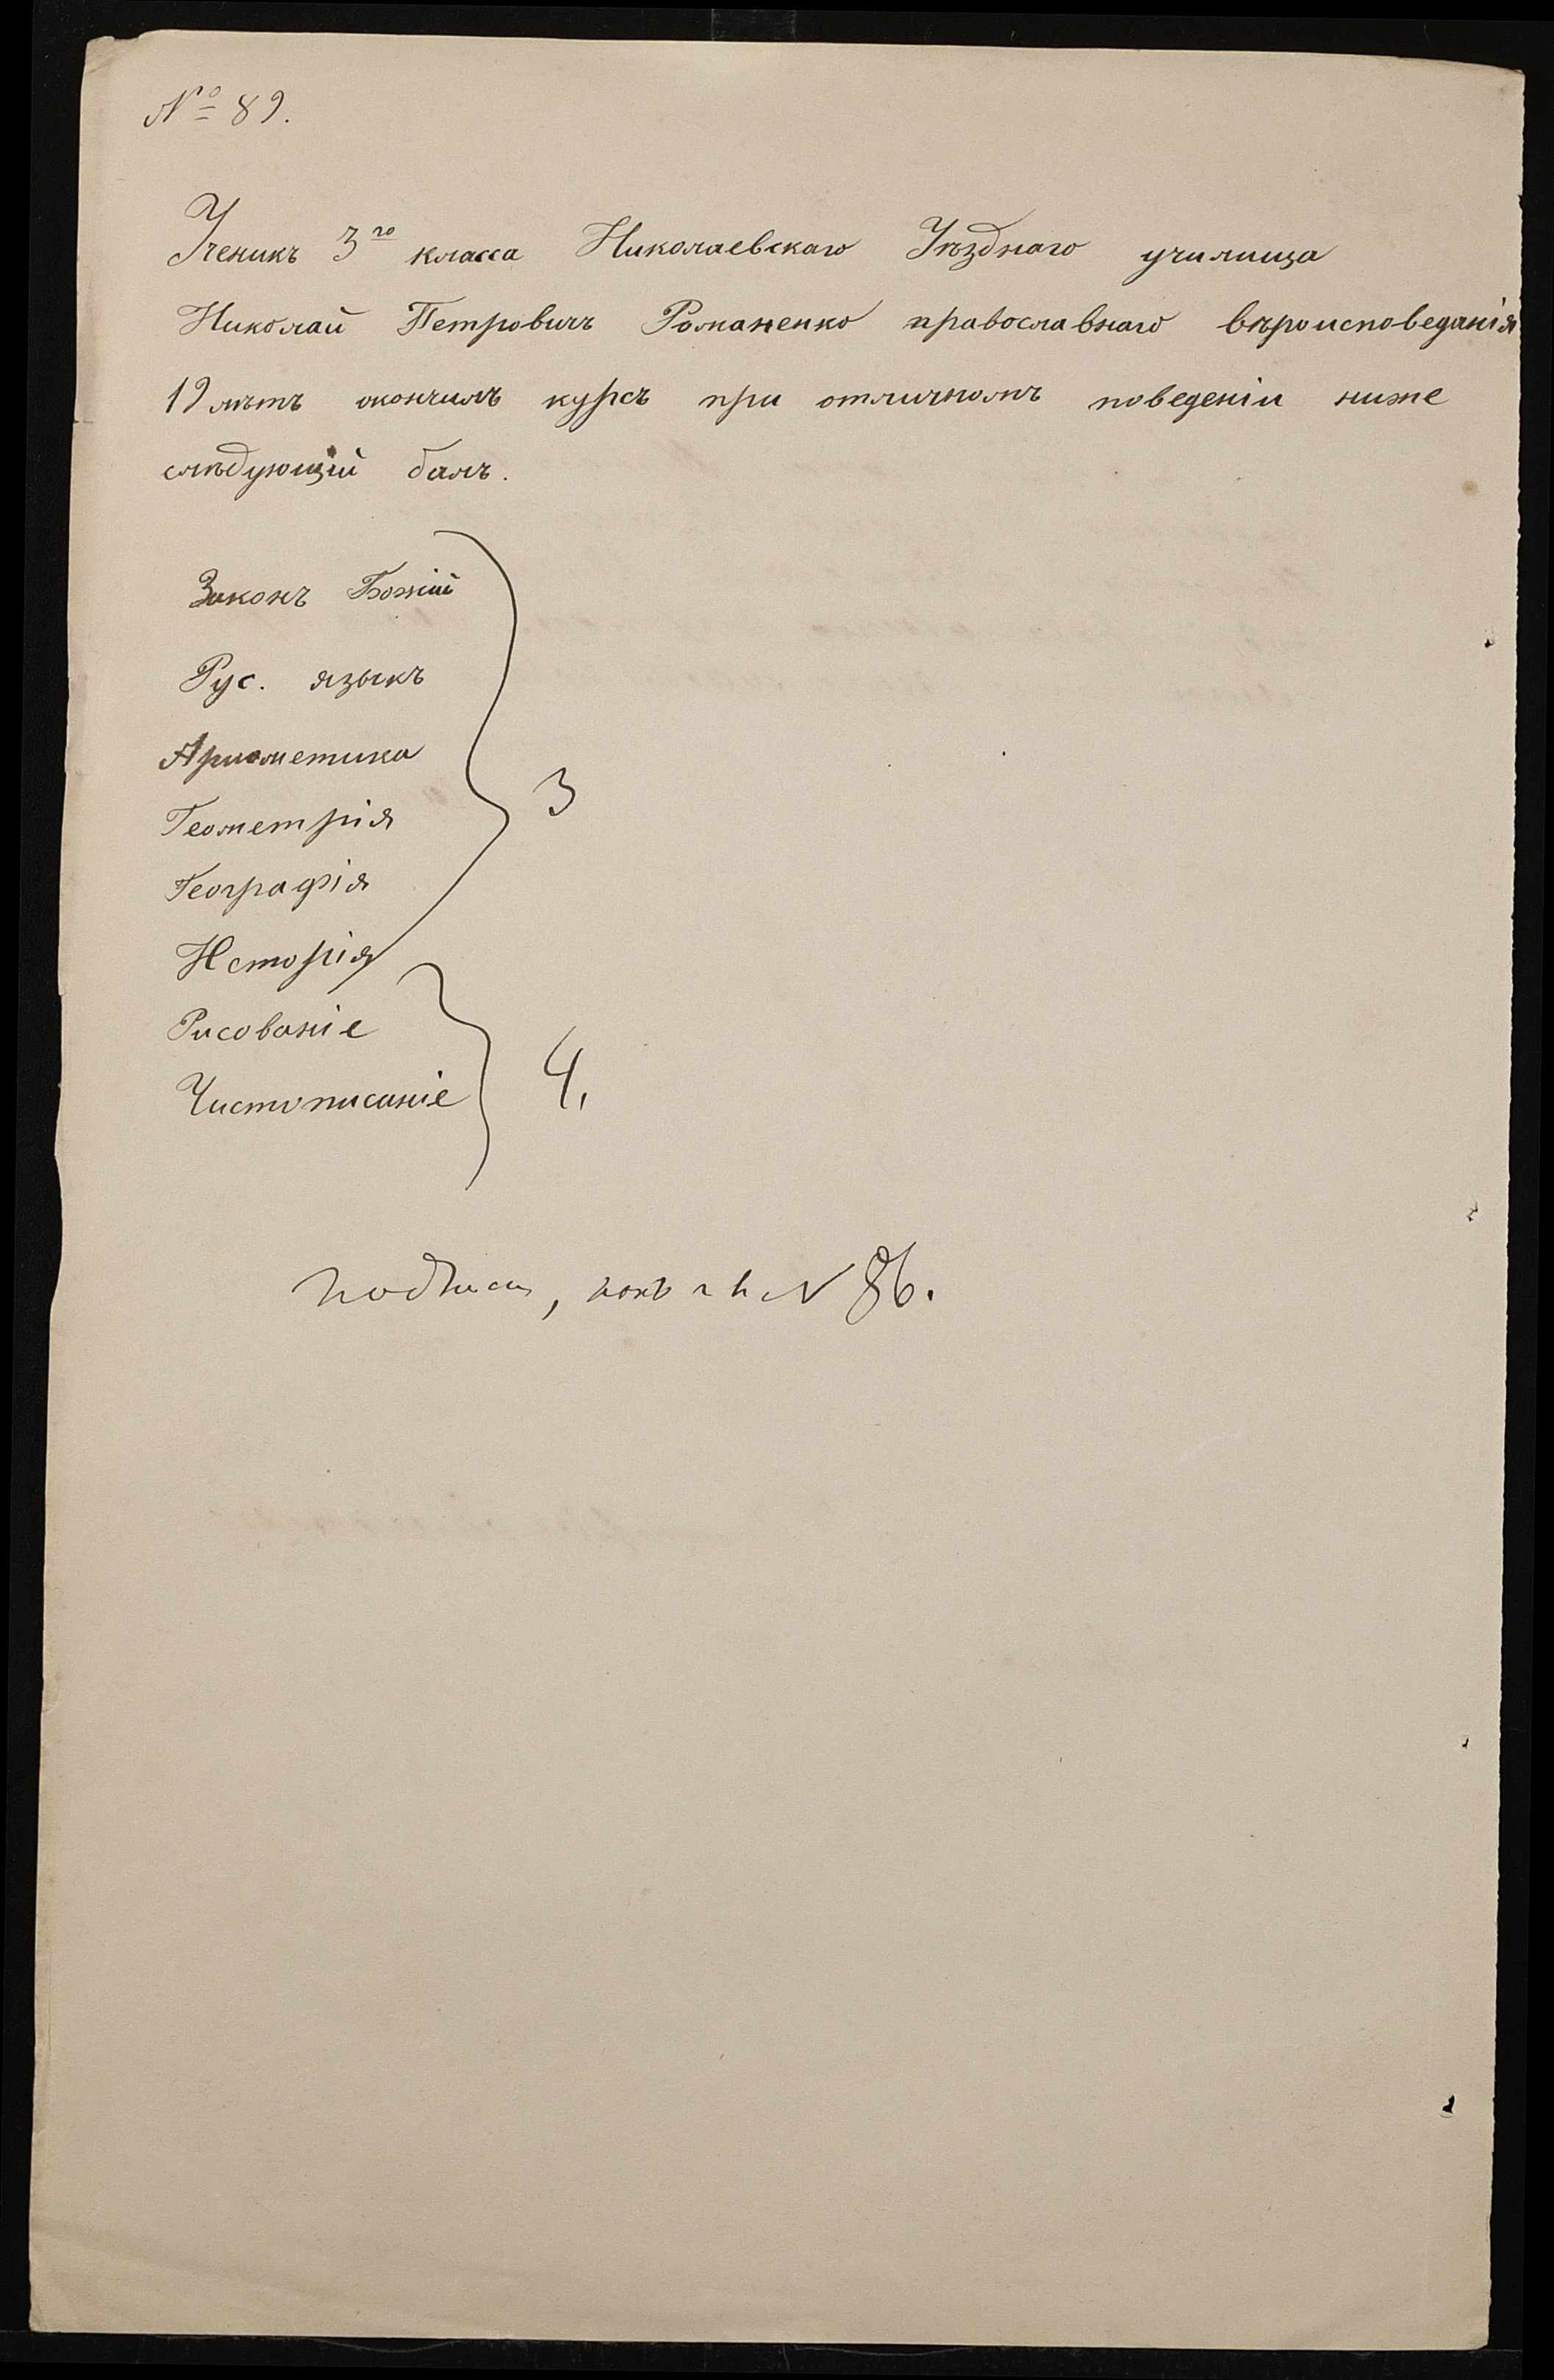 № 89.
Ученикъ 3го класса Николаевскаго Уѣзднаго училища
Николай Петровичъ Романенко православнаго вѣроисповеданія
19 лѣтъ окончилъ курсъ при отличномъ поведеніи ниже
слѣдующій балъ.
Законъ Божій
Рус. языкъ
Ариѳметика
Геометрія 3
Географія
Исторія
Рисованіе
Чистописаніе 4.
подписи, N 86.